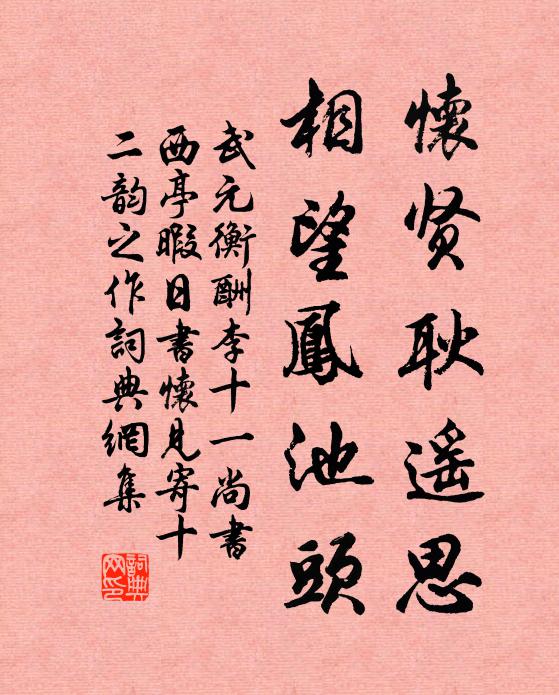 懷贤耿遥思
相望鳳池頭
武元衡酬李十一尚書
西亭暇日書懷見寄十
二韵之作詞典網集
詞典网印